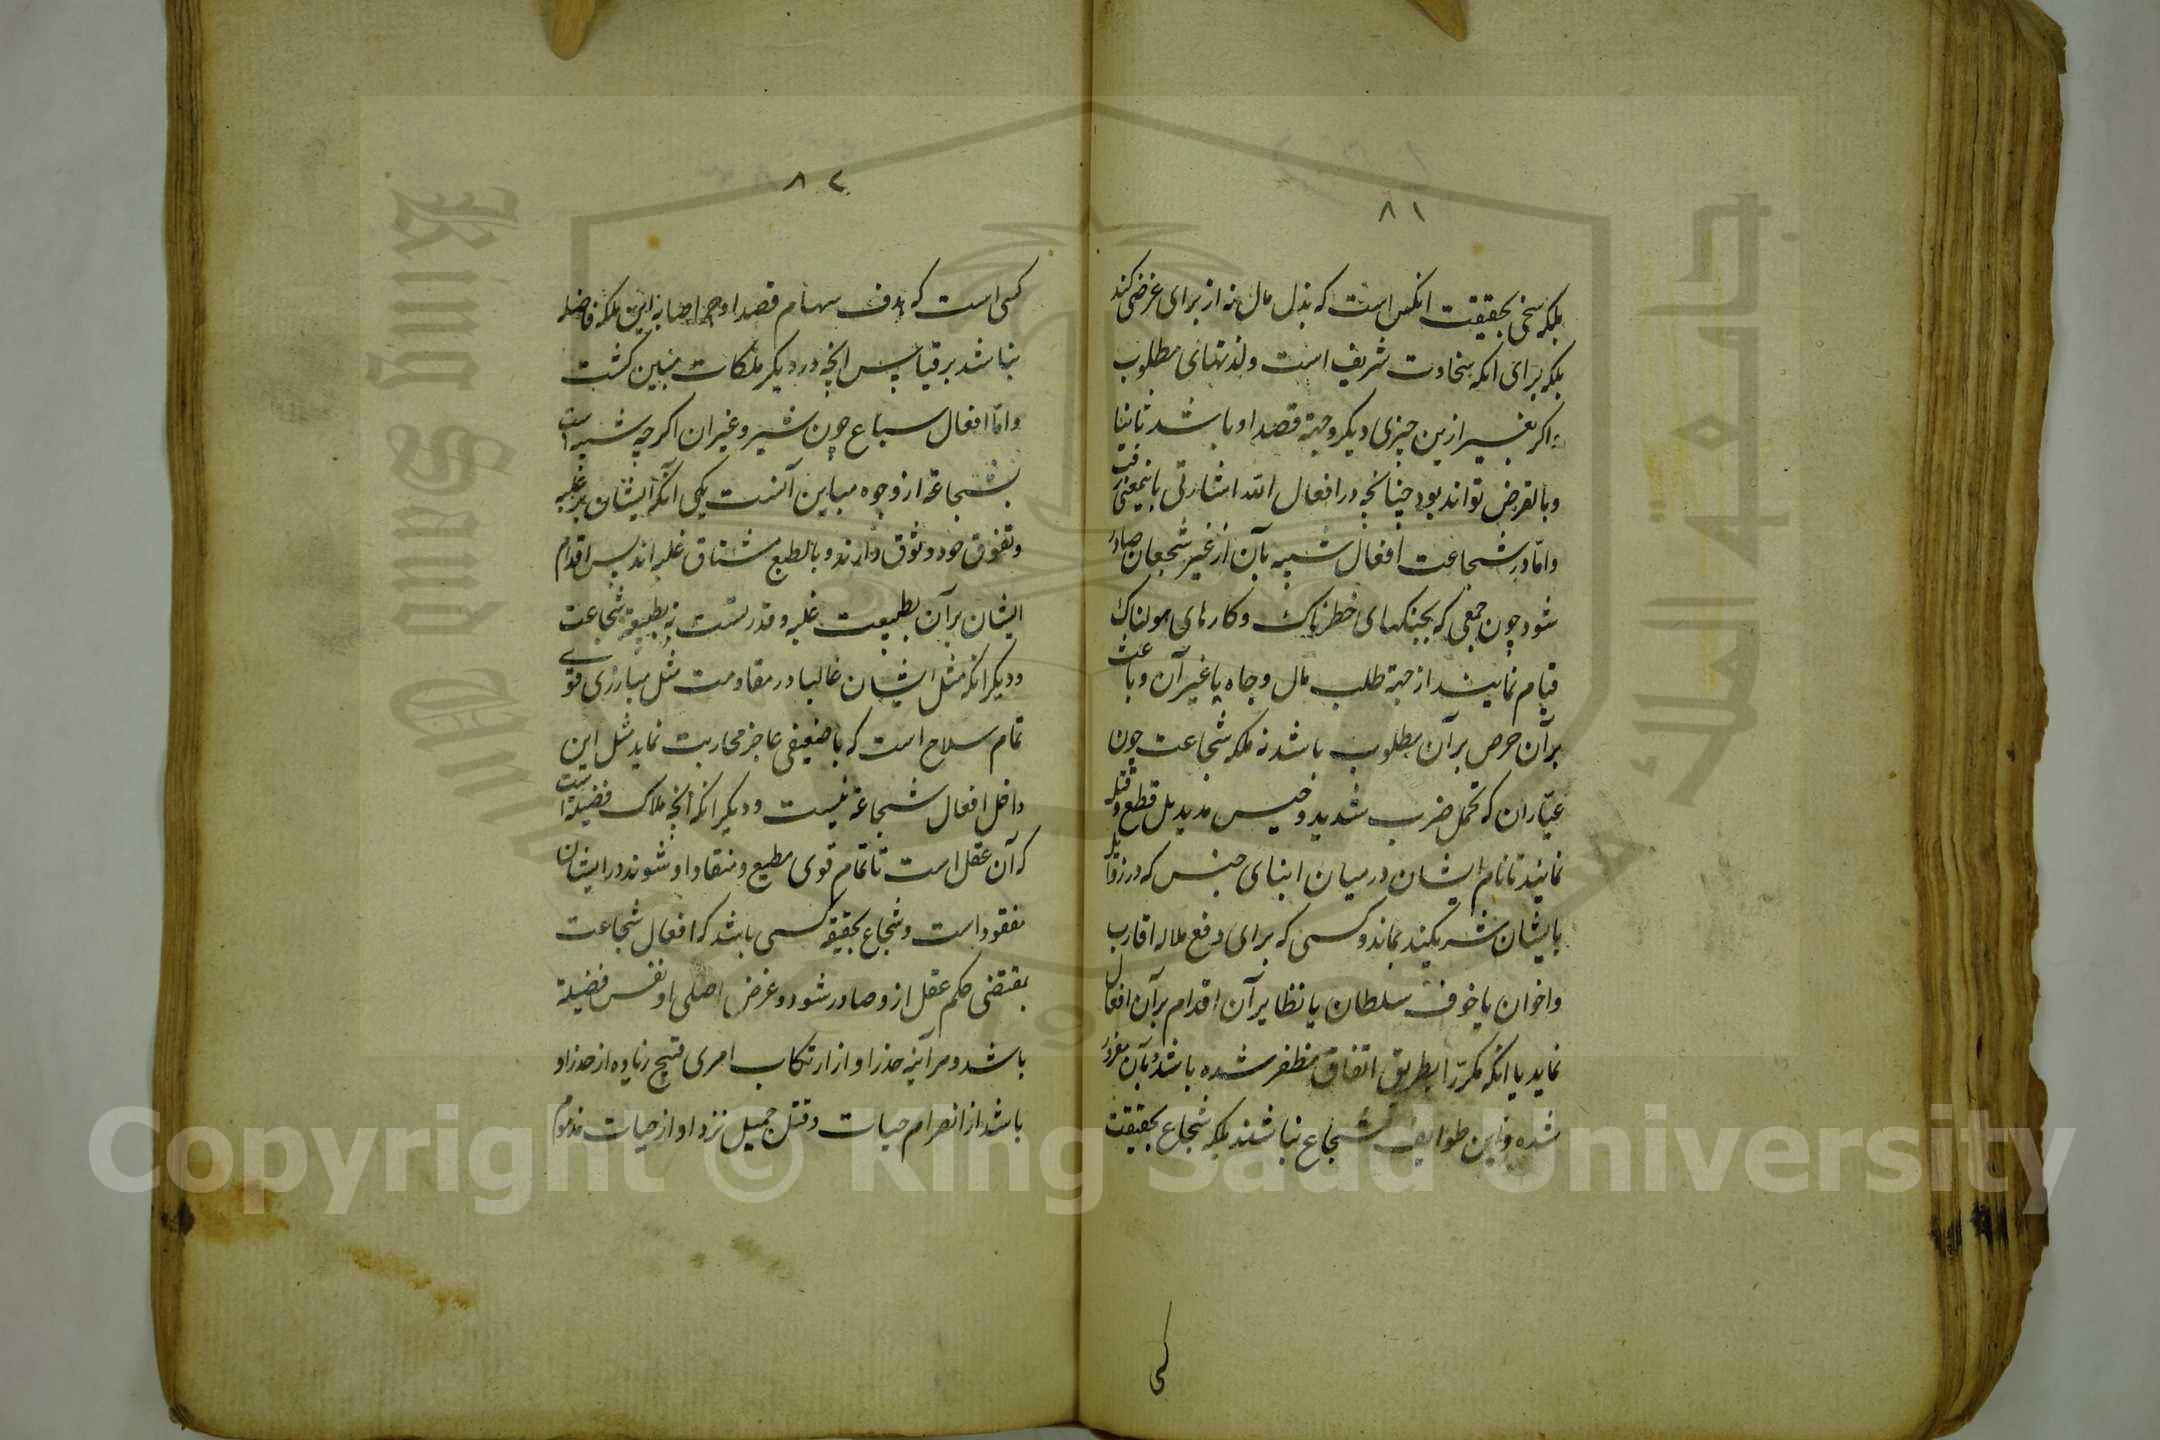 ٨١
بلکه سخی بحقیقت انکس است که بذل مال نه از برای غرضی کند
بلکه برای انکه سخاوت شریف است ولذتهای مطلوب
اکر بغیر ازین چیزی دیکر وجهة قصد او باشد ثانیا
وبالعرض تواند بود چنانچه در افعال الله اشارتی باینمعنی رفت
واما در شجاعت افعال شبیه بآن از غیر شجعان صادر
شود چون جمعی که بجنکهای خطرناک وکارهای هولناک
قیام نمایند از جهة طلب مال وجاه یا غیر آن وباعث
بر آن حرص بر آن مطلوب باشد نه ملکه شجاعت چون
عیاران که تحمل ضرب شدید وحبس مدید بل قطع وقتل
نمایند تا نام ایشان در میان ابنای جنس که در رذایل
بایشان شریکند بماند وکسی که برای دفع ملاله اقارب
واخوان یا خوف سلطان یا نظایر آن اقدام بر آن افعال
نماید یا انکه مکررا بطریق اتفاق مظفر شده باشد وبآن مغرور
شده واین طوایف شجاع نباشند بلکه شجاع بحقیقت
کسی
٨٢
کسی است که هدف سهام قصد او جز اصابه این ملکه فاضله
نباشد بر قیاس انچه در دیکر ملکات مبین کشت
واما افعال سباع چون شیر وغیر ان اکر چه شبیه است
بشجاعة از وجوه مباین آنست یکی آنکه ایشان بر غلبه
وتفوق خود وثوق دارند وبالطبع مشتاق غلبه اند پس اقدام
ایشان بر آن بطبیعت غلبه وقدرتست نه بطبیعة شجاعت
ودیکر انکه مثل ایشان غالبا در مقاومت مثل مبارزی قوی
تمام سلاح است که با ضعیفی عاجز محاربت نماید مثل این
داخل افعال شجاعة نیست ودیکر انکه آنچه ملاک فضیلة است
که آن عقل است تا تمام قوی مطیع ومنقاد او شوند در ایشان
مفقود است وشجاع بحقیقه کسی باشد که افعال شجاعت
بمقتضی حکم عقل ازو صادر شود وغرض اصلی او نفس فضیلة
باشد وهر آینه حذر او از ارتکاب امری قبیح زیاده از حذر او
باشد از انصرام حیات وقتل جمیل نزد او از حیات مذموم
Copyright © King Saud University